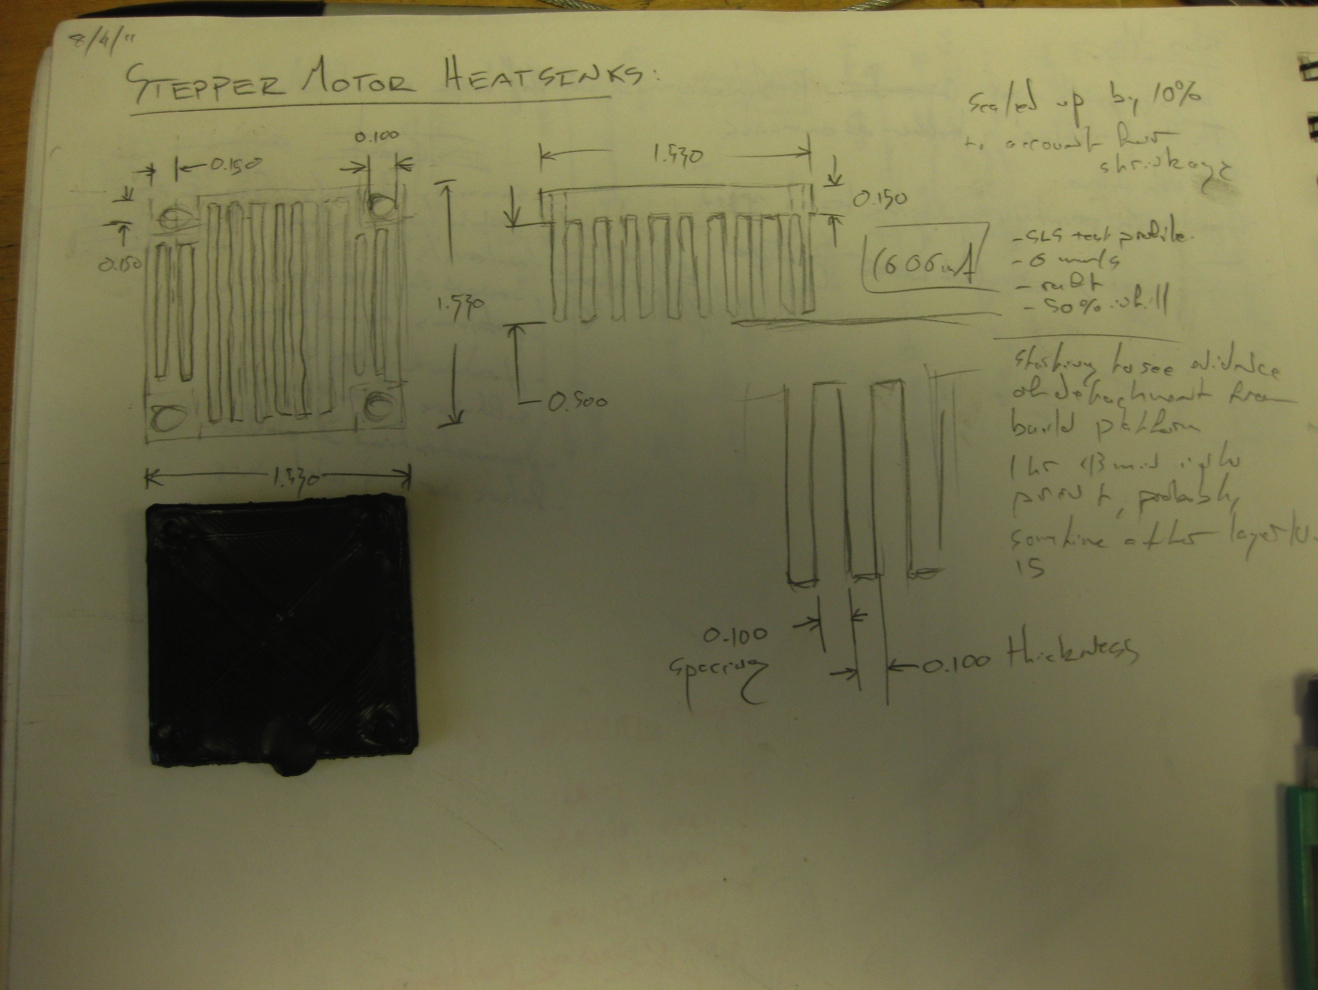 8/4/11
STEPPER MOTOR HEATSINKS:
Scaled up by 10%
to account for
shrinkage
0.100
0.150
0.150
1.530
1.530
1.530
0.150
0.500
- SLS test profile
- 6 walls
- raft
- 50% infill
Starting to see evidence
of detachment from
build platform
1 hr 43 min into
print, probably
sometime after layer
15
0.100
spacing
0.100 thickness